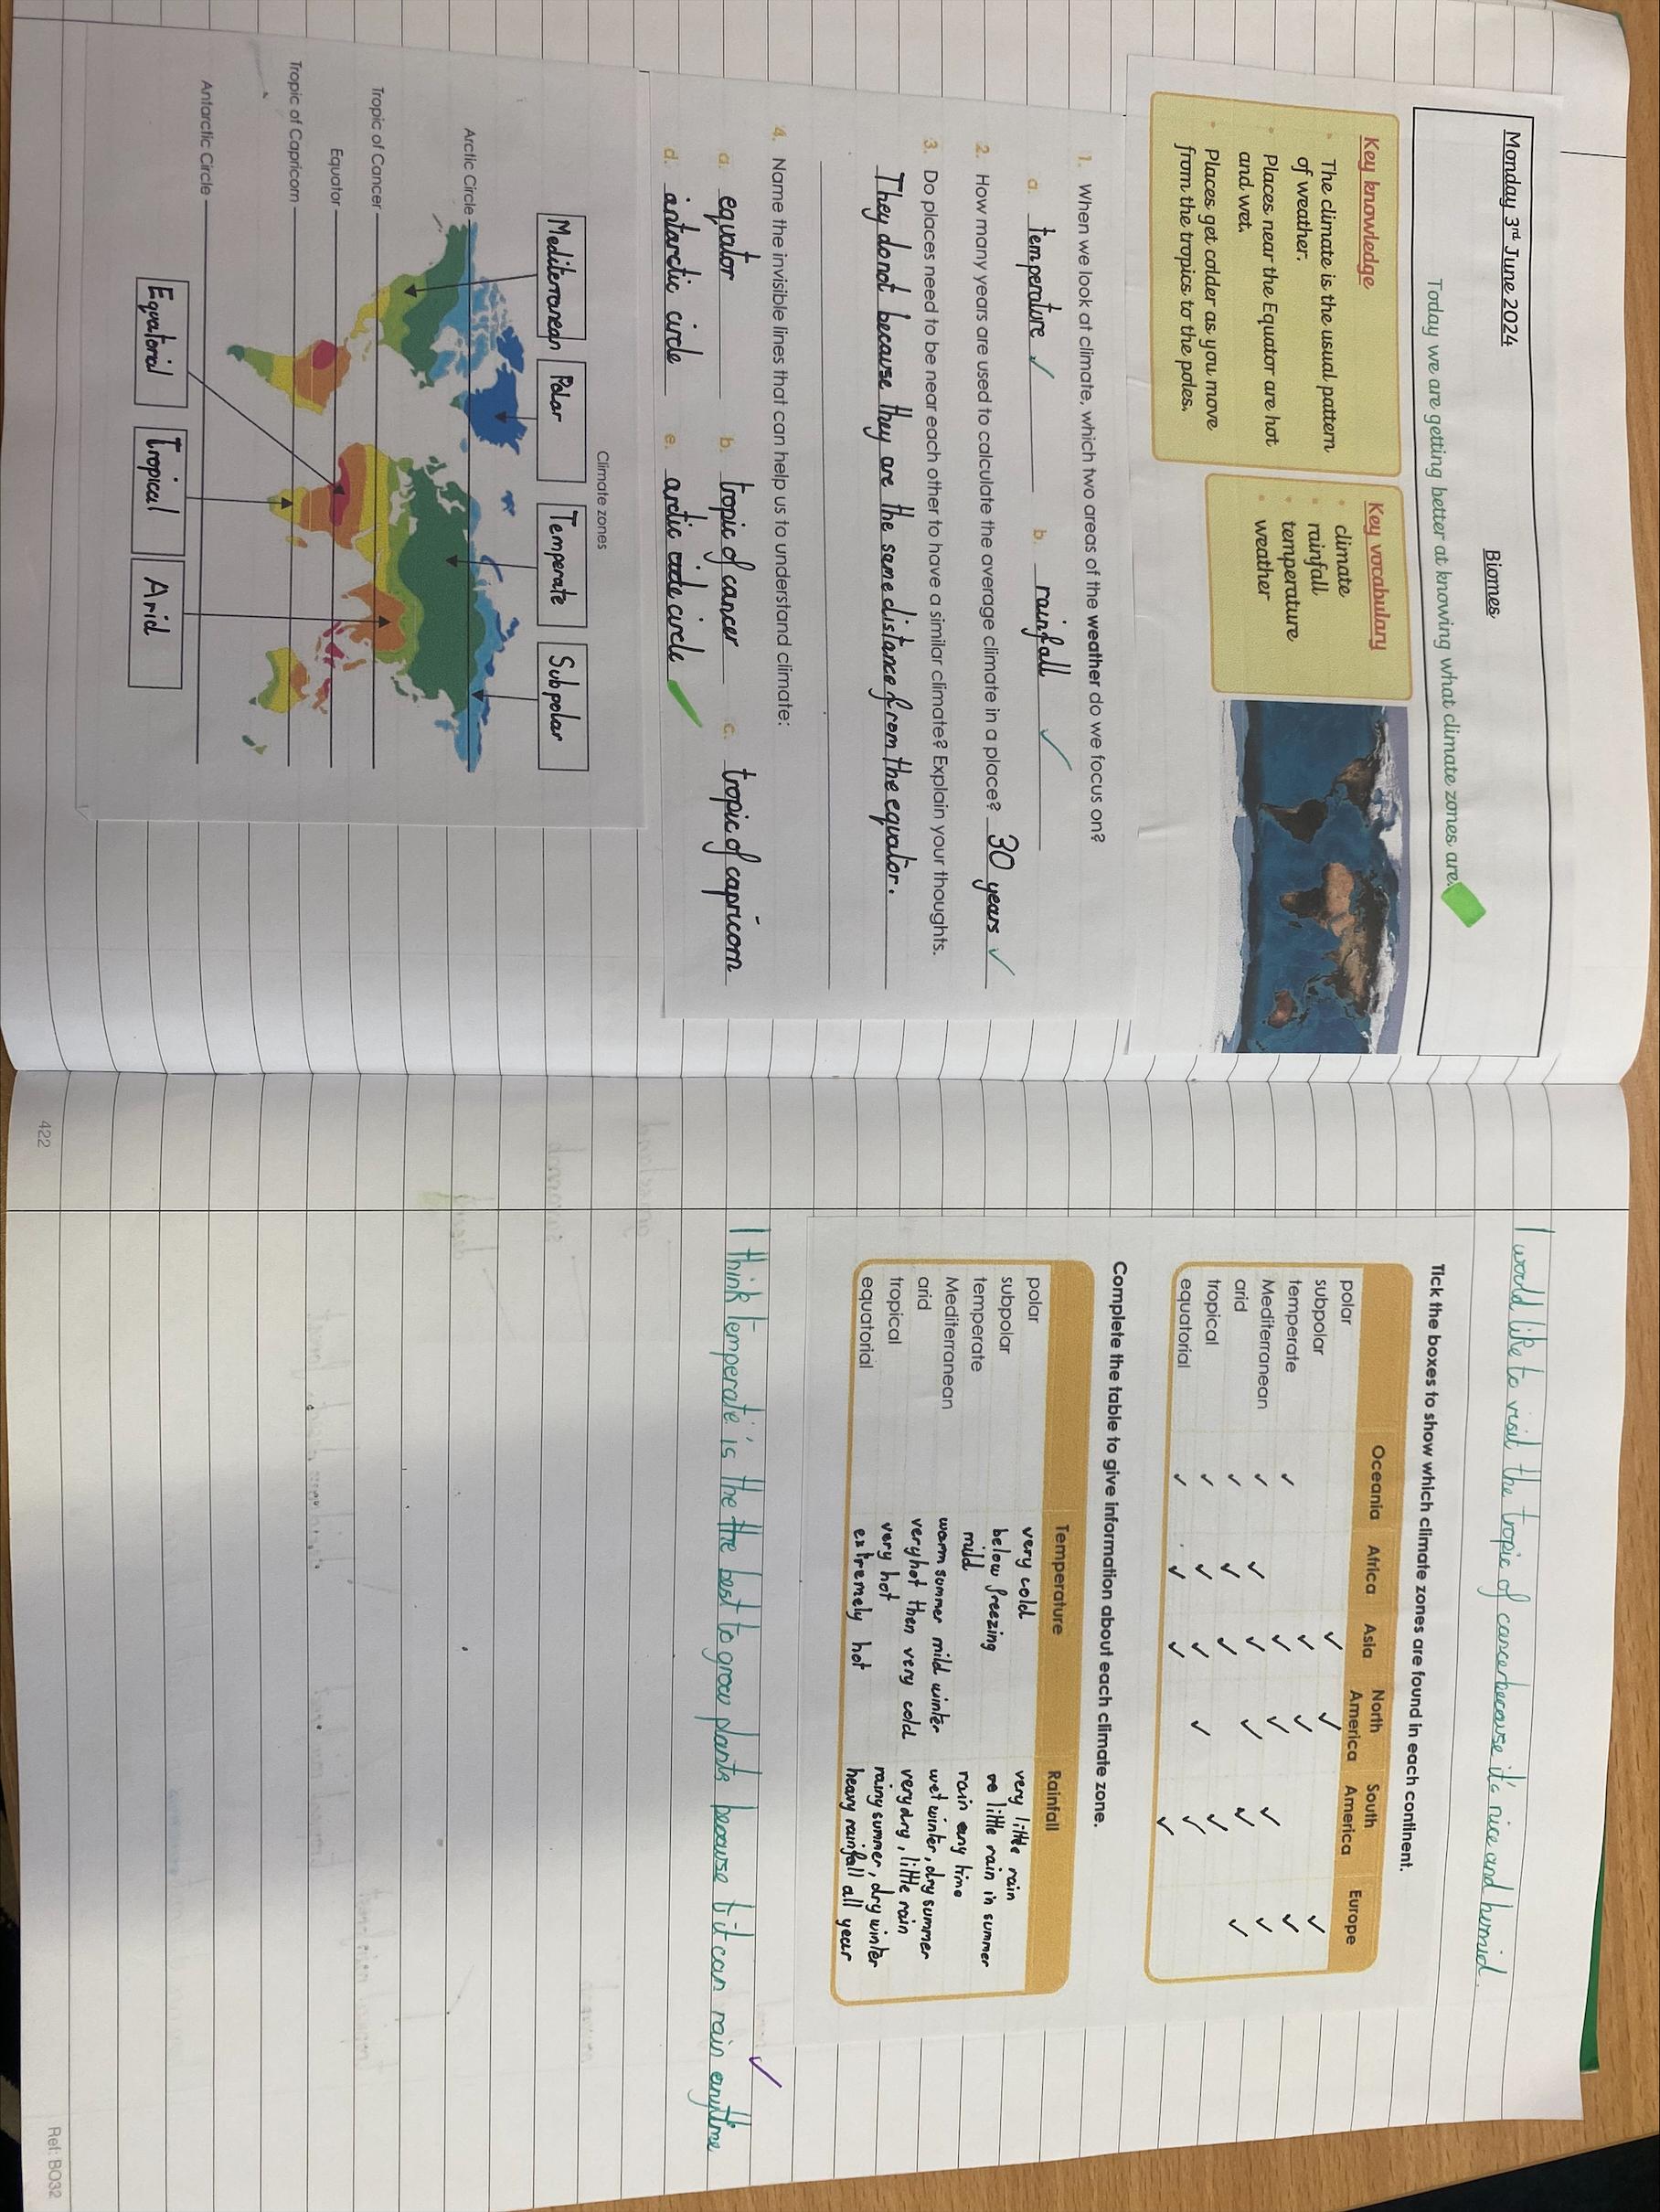 Monday 3rd June 2024
Biomes
Today we are getting better at knowing what climate zones are.
Key knowledge
• The climate is the usual pattern
of weather.
• Places near the Equator are hot
and wet.
• Places get colder as you move
from the tropics to the poles.
Key vocabulary
• climate
• rainfall
• temperature
• weather
1. When we look at climate, which two areas of the weather do we focus on?
a. temperature ✓ b. rainfall ✓
2. How many years are used to calculate the average climate in a place? 30 years ✓
3. Do places need to be near each other to have a similar climate? Explain your thoughts.
They do not because they are the same distance from the equator.
4. Name the invisible lines that can help us to understand climate:
a. equator b. tropic of cancer c. tropic of capricorn
d. antarctic circle e. arctic circle
Climate zones
Mediterranean Polar Temperate Subpolar
Arctic Circle
Tropic of Cancer
Equator
Tropic of Capricorn
Antarctic Circle
Equatorial Tropical Arid
I would like to visit the tropic of cancer because it's nice and humid.
Tick the boxes to show which climate zones are found in each continent.
Oceania Africa Asia North America South America Europe
polar ✓ ✓
subpolar ✓ ✓ ✓
temperate ✓ ✓ ✓ ✓ ✓
Mediterranean ✓ ✓ ✓ ✓ ✓ ✓
arid ✓ ✓ ✓ ✓ ✓
tropical ✓ ✓ ✓ ✓ ✓
equatorial ✓ ✓ ✓ ✓
Complete the table to give information about each climate zone.
Temperature Rainfall
polar very cold very little rain
subpolar below freezing little rain in summer
temperate mild rain any time
Mediterranean warm summer mild winter wet winter, dry summer
arid very hot then very cold very dry, little rain
tropical very hot rainy summer, dry winter
equatorial extremely hot heavy rainfall all year
I think temperate is the the best to grow plants because it can rain anytime
422
Ref: BO32